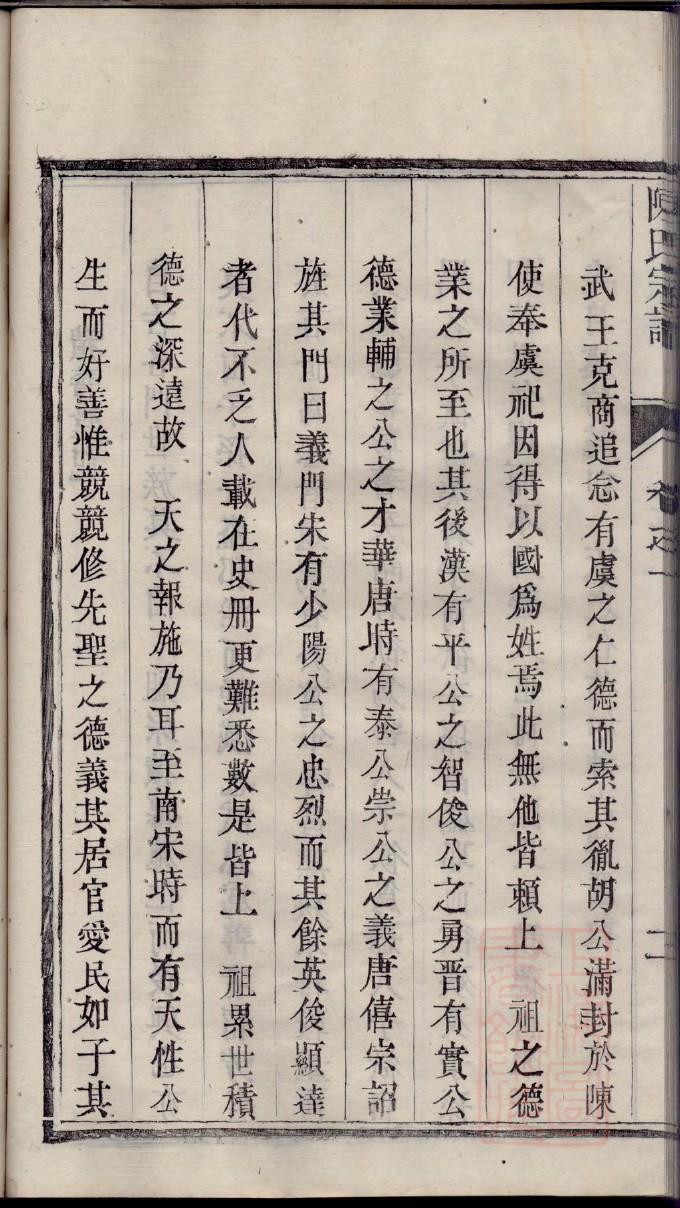 陳氏宗譜
卷之一
二
武王克商追念有虞之仁德而索其胤胡公滿封於陳
使奉虞祀因得以國爲姓焉此無他皆賴上 祖之德
業之所至也其後漢有平公之智俊公之勇晋有實公
德業輔之公之才華唐時有泰公崇公之義唐僖宗詔
旌其門曰義門朱有少陽公之忠烈而其餘英俊顯達
者代不乏人載在史冊更難悉數是皆上 祖累世積
德之深遠故 天之報施乃耳至南宋時而有天性公
生而好善惟競競修先聖之德義其居官愛民如子其